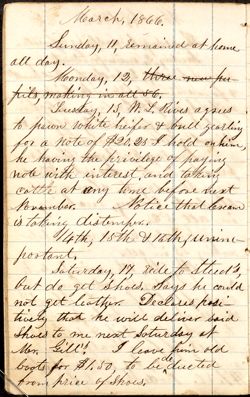 March, 1866.
Sunday, 11, remained at home
all day.
Monday, 12, three new pu-
pils, making in all 86.
Tuesday, 13, W. L. Hives agrees
to pawn white heifer & bull yearling
for a note of $21.25 I hold on him,
he having the privilege of paying
note with interest, and taking
cattle at any time before next
November. Notice that
is taking distemper.
14th, 15th & 16th, unim-
portant.
Saturday, 17, ride to Street's,
but do get shoes. Says he could
not get leather. Declares posi-
tively that he will deliver said
shoes to me next Saturday at
Mr. Gill's. I leave him old
boots for $1.50 to be deducted
from price of shoes.